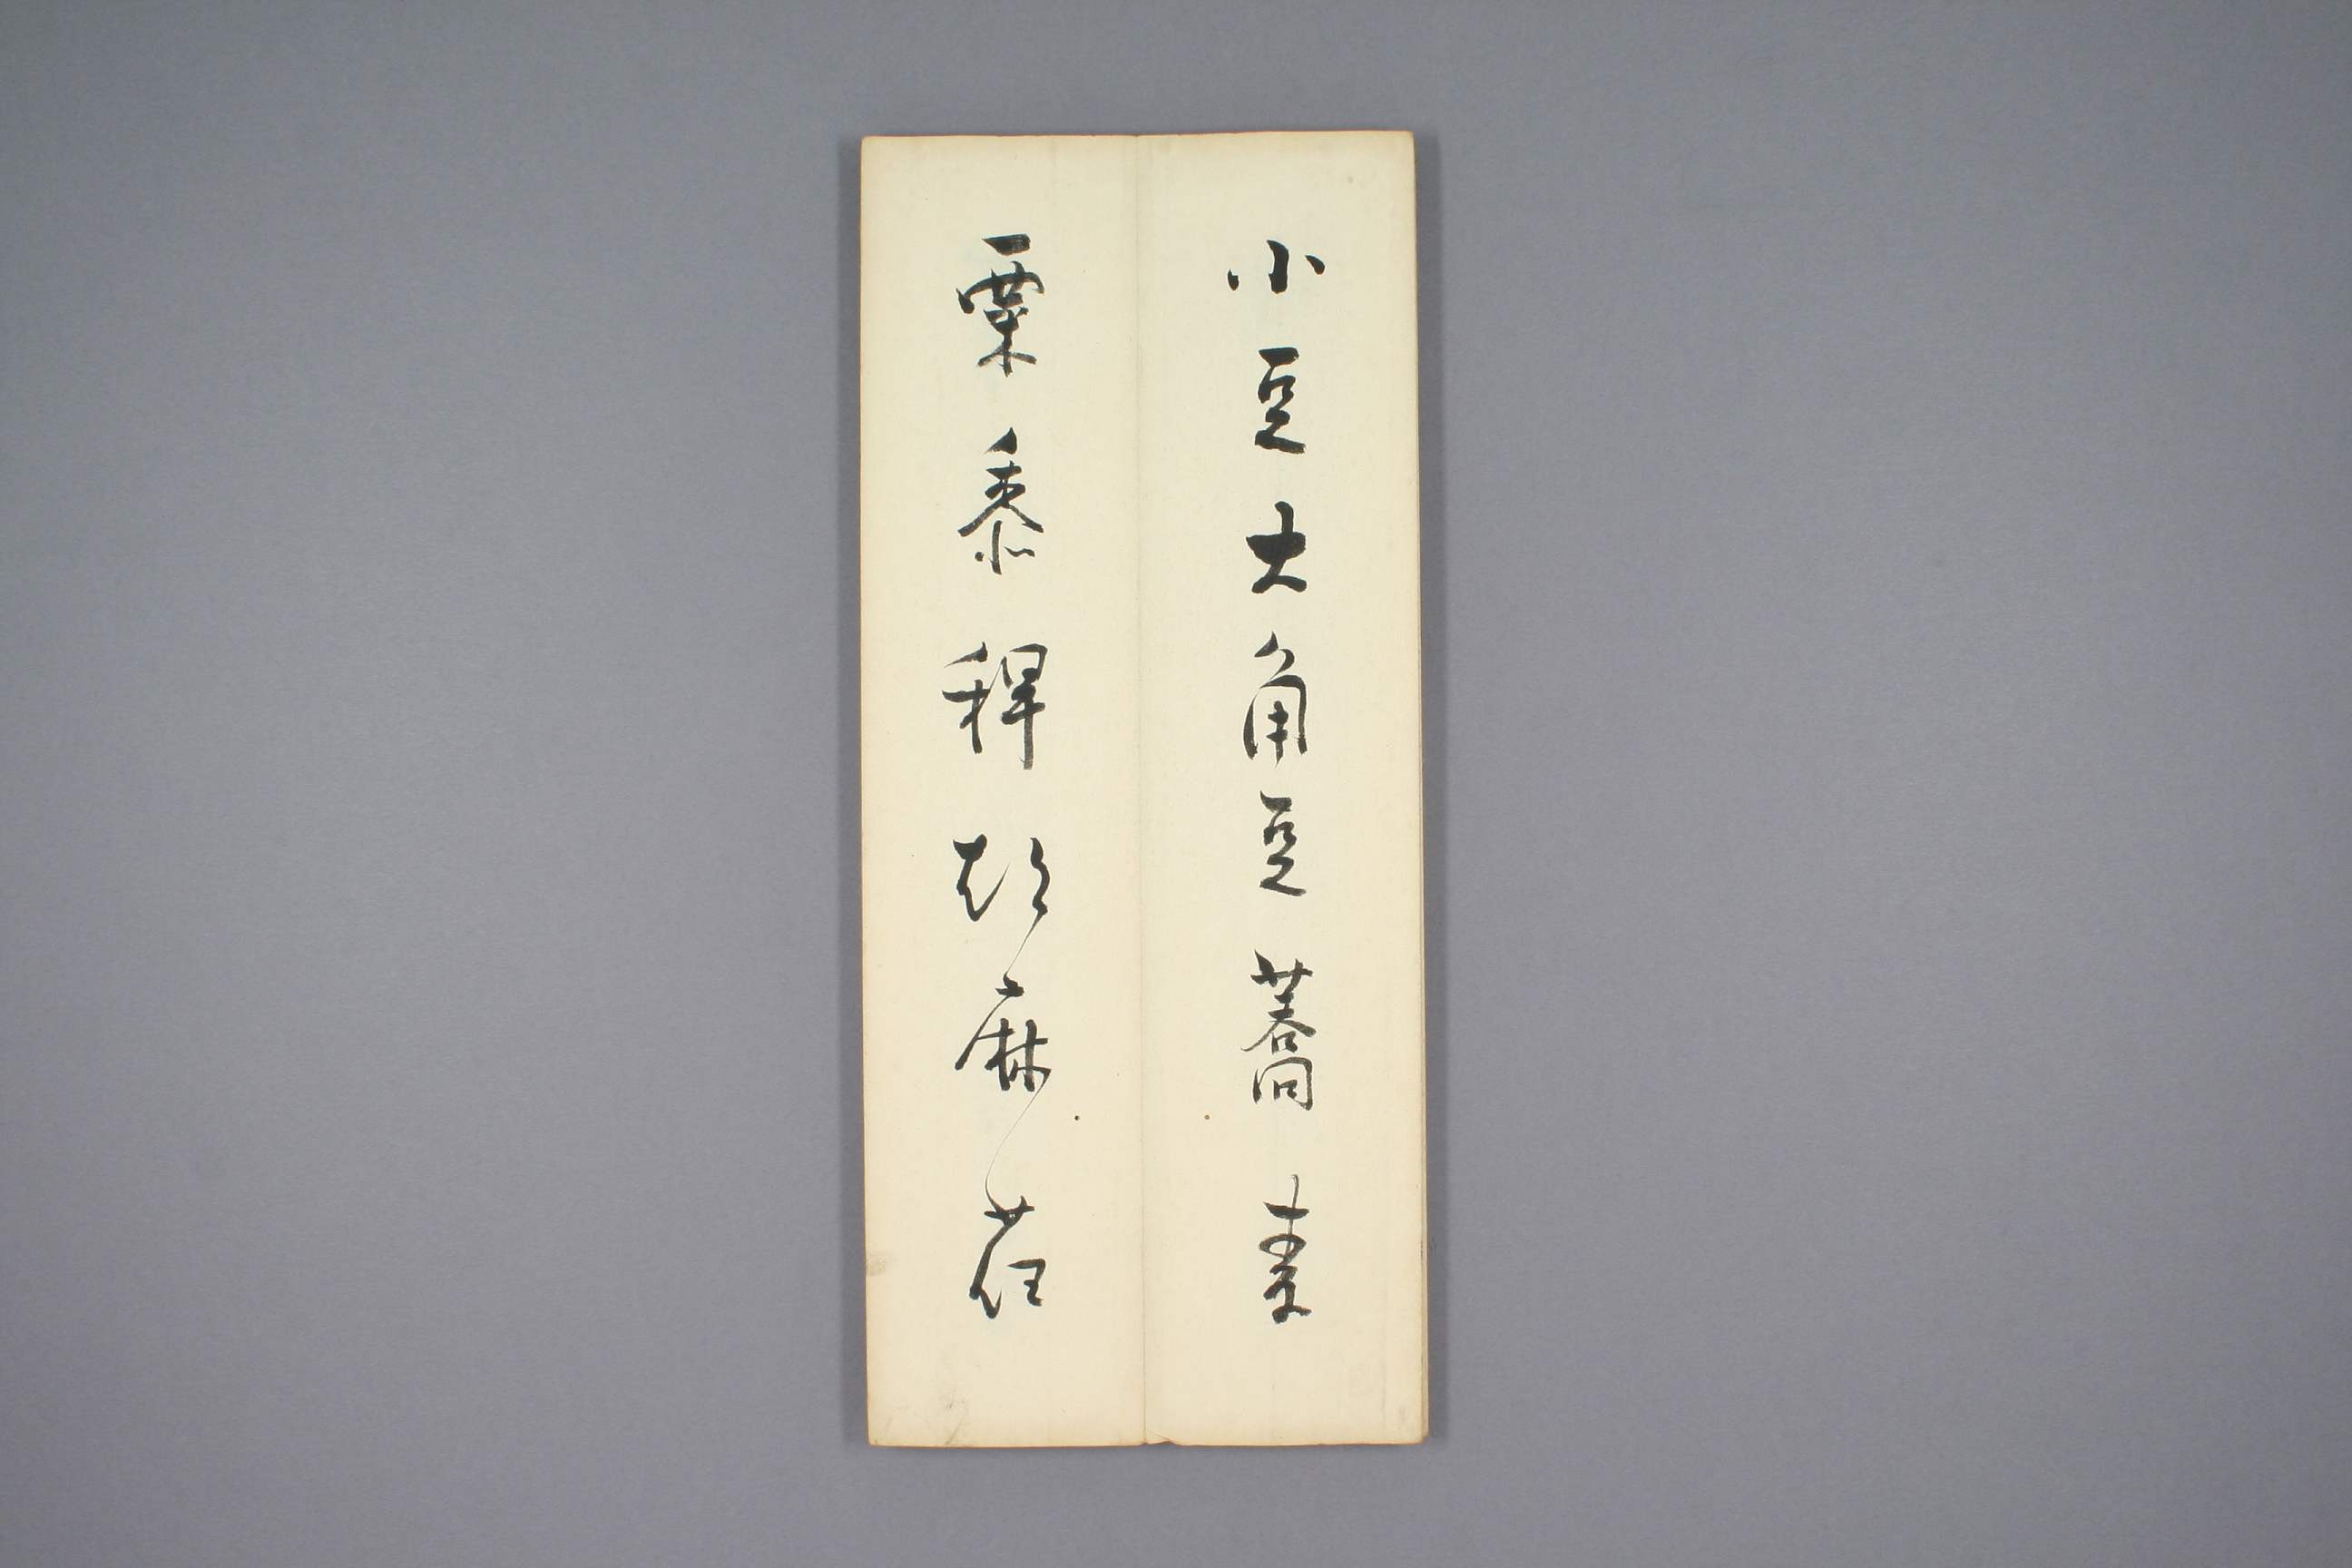 小豆大角豆蕎麦
粟黍稗胡麻荏